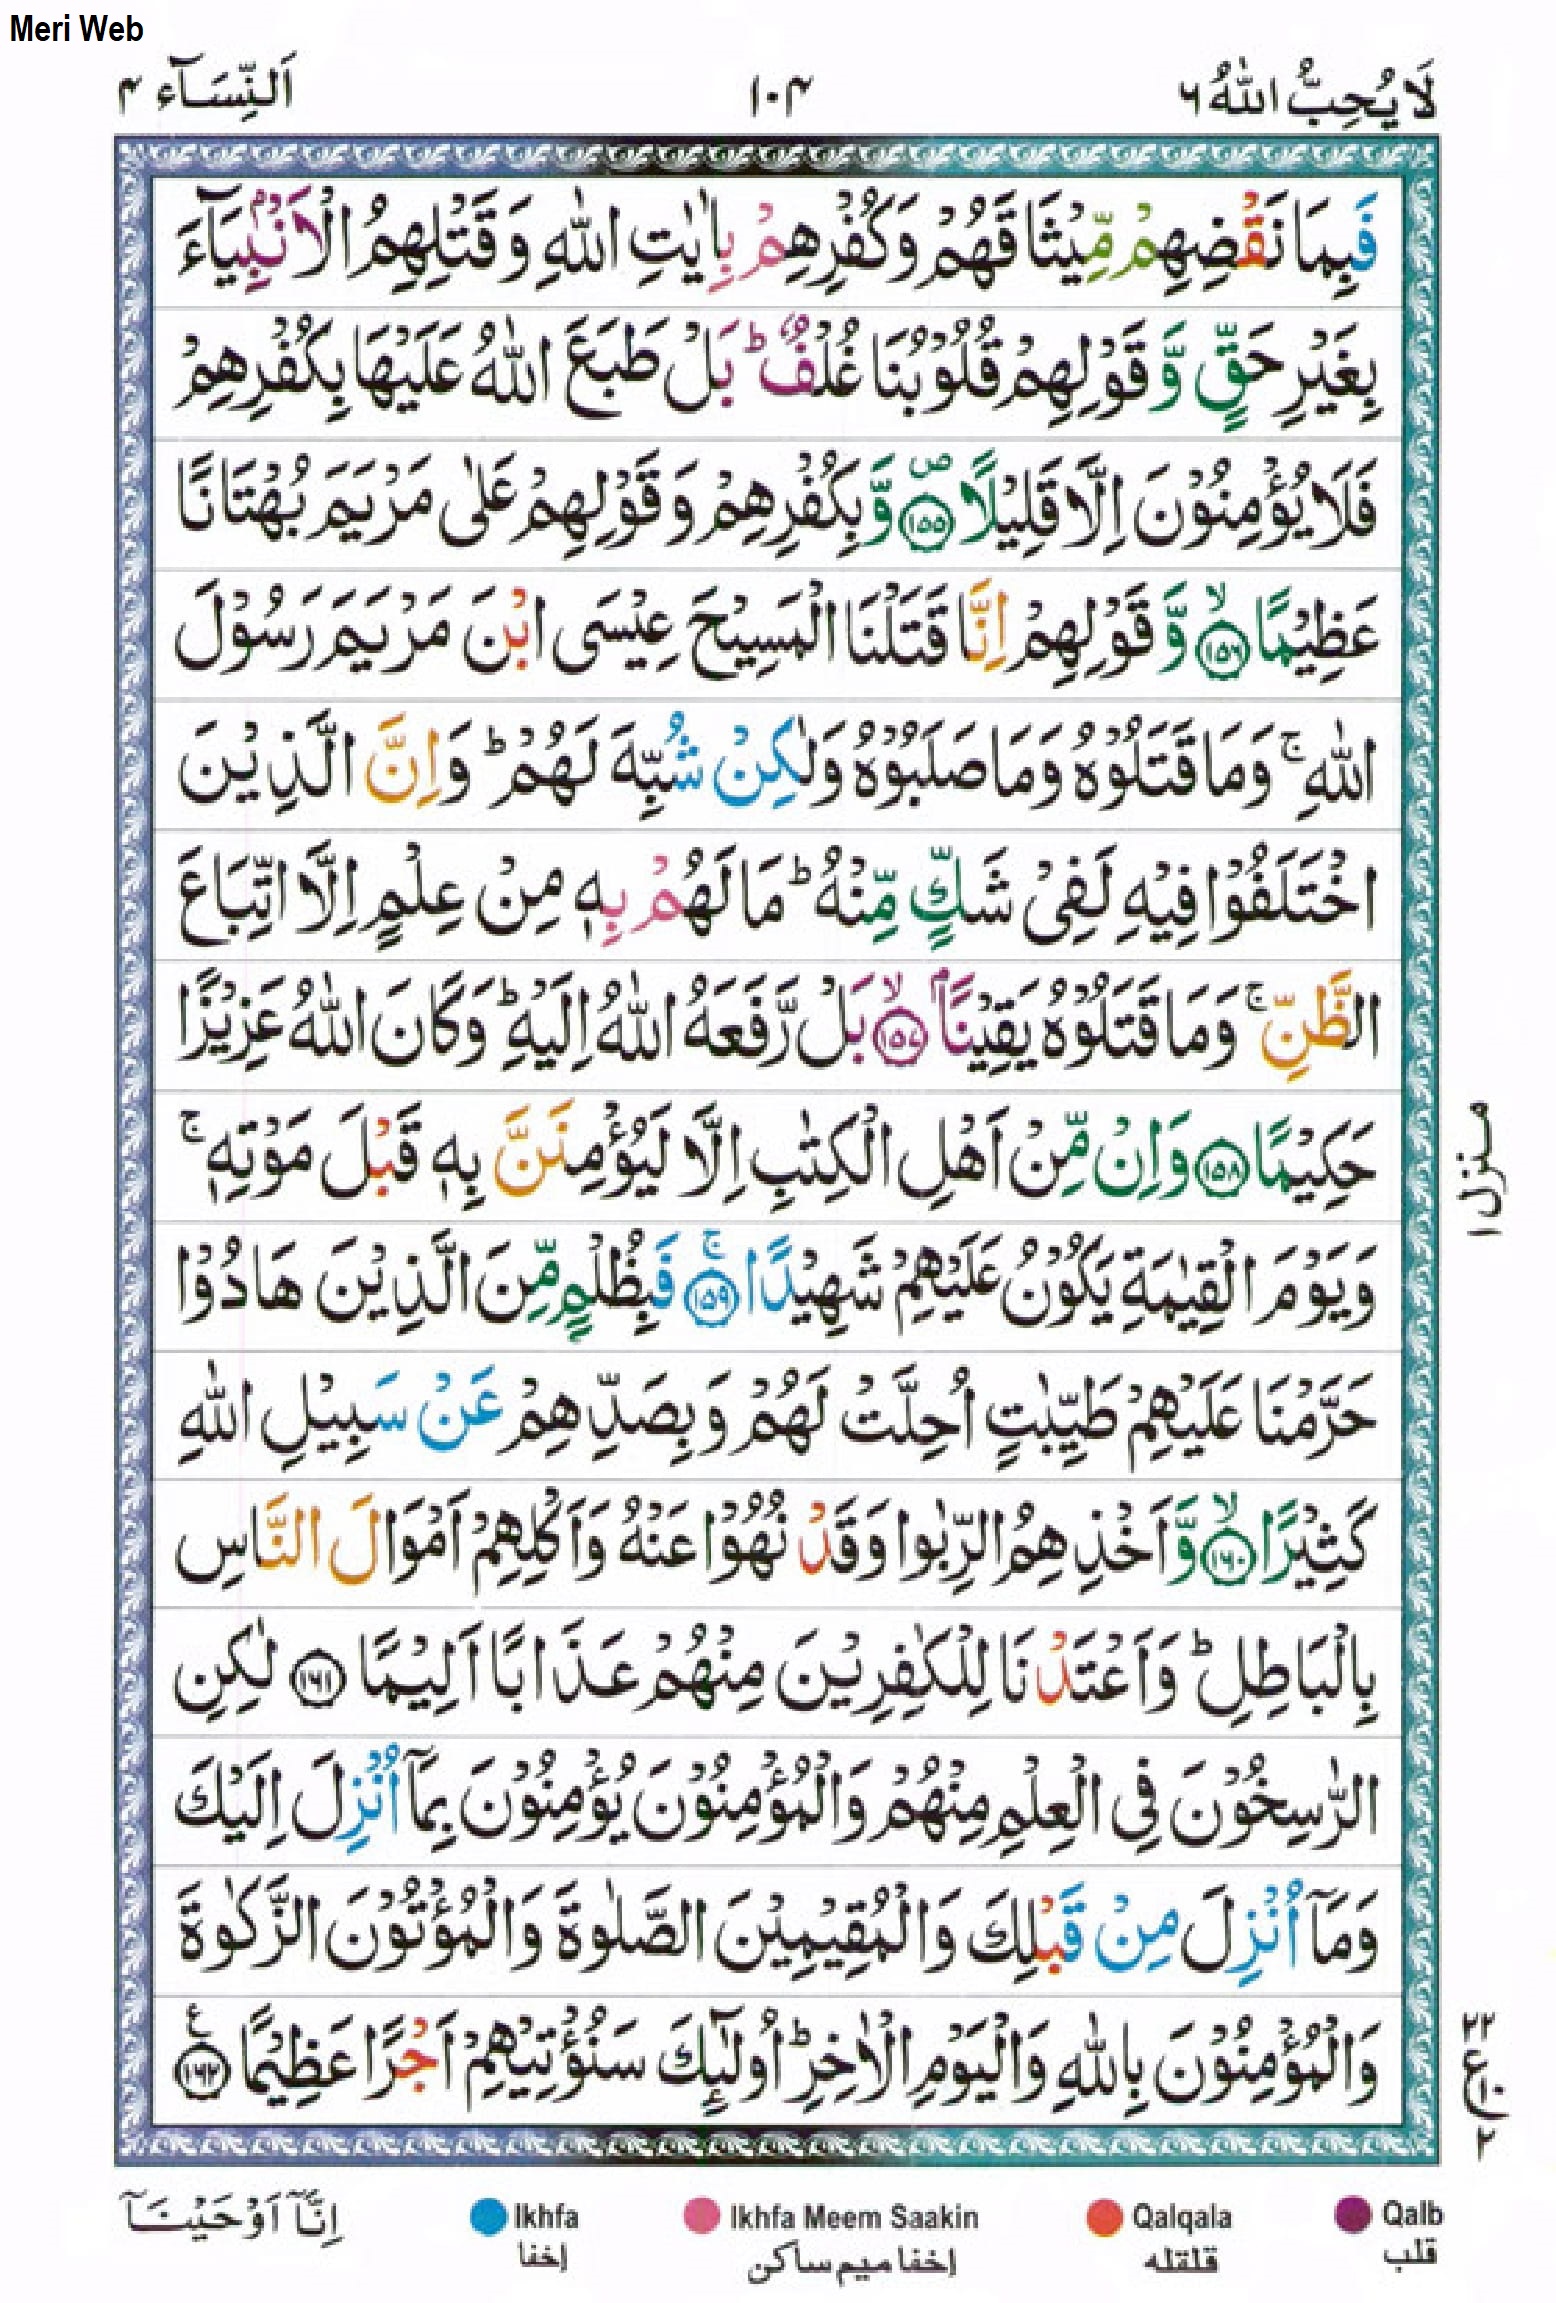 Meri Web
لَا يُحِبُّ اللّٰهُ ٦ ١٠٤ اَلنِّسَآء ٤
فَبِمَا نَقْضِهِمْ مِّيْثَاقَهُمْ وَكُفْرِهِمْ بِاٰيٰتِ اللّٰهِ وَقَتْلِهِمُ الْاَنْۢبِيَآءَ
بِغَيْرِ حَقٍّ وَّقَوْلِهِمْ قُلُوْبُنَا غُلْفٌۢ ؕ بَلْ طَبَعَ اللّٰهُ عَلَيْهَا بِكُفْرِهِمْ
فَلَا يُؤْمِنُوْنَ اِلَّا قَلِيْلًا ۪﴿١٥٥﴾ وَّبِكُفْرِهِمْ وَقَوْلِهِمْ عَلٰى مَرْيَمَ بُهْتَانًا
عَظِيْمًا ۙ﴿١٥٦﴾ وَّقَوْلِهِمْ اِنَّا قَتَلْنَا الْمَسِيْحَ عِيْسَى ابْنَ مَرْيَمَ رَسُوْلَ
اللّٰهِ ۚ وَمَا قَتَلُوْهُ وَمَا صَلَبُوْهُ وَلٰكِنْ شُبِّهَ لَهُمْ ؕ وَاِنَّ الَّذِيْنَ
اخْتَلَفُوْا فِيْهِ لَفِىْ شَكٍّ مِّنْهُ ؕ مَا لَهُمْ بِهٖ مِنْ عِلْمٍ اِلَّا اتِّبَاعَ
الظَّنِّ ۚ وَمَا قَتَلُوْهُ يَقِيْنًۢا ۙ﴿١٥٧﴾ بَلْ رَّفَعَهُ اللّٰهُ اِلَيْهِ ؕ وَكَانَ اللّٰهُ عَزِيْزًا
حَكِيْمًا ﴿١٥٨﴾ وَاِنْ مِّنْ اَهْلِ الْكِتٰبِ اِلَّا لَيُؤْمِنَنَّ بِهٖ قَبْلَ مَوْتِهٖ ۚ
وَيَوْمَ الْقِيٰمَةِ يَكُوْنُ عَلَيْهِمْ شَهِيْدًا ۚ﴿١٥٩﴾ فَبِظُلْمٍ مِّنَ الَّذِيْنَ هَادُوْا
حَرَّمْنَا عَلَيْهِمْ طَيِّبٰتٍ اُحِلَّتْ لَهُمْ وَبِصَدِّهِمْ عَنْ سَبِيْلِ اللّٰهِ
كَثِيْرًا ۙ﴿١٦٠﴾ وَّاَخْذِهِمُ الرِّبٰوا وَقَدْ نُهُوْا عَنْهُ وَاَكْلِهِمْ اَمْوَالَ النَّاسِ
بِالْبَاطِلِ ؕ وَاَعْتَدْنَا لِلْكٰفِرِيْنَ مِنْهُمْ عَذَابًا اَلِيْمًا ﴿١٦١﴾ لٰكِنِ
الرّٰسِخُوْنَ فِى الْعِلْمِ مِنْهُمْ وَالْمُؤْمِنُوْنَ يُؤْمِنُوْنَ بِمَآ اُنْزِلَ اِلَيْكَ
وَمَآ اُنْزِلَ مِنْ قَبْلِكَ وَالْمُقِيْمِيْنَ الصَّلٰوةَ وَالْمُؤْتُوْنَ الزَّكٰوةَ
وَالْمُؤْمِنُوْنَ بِاللّٰهِ وَالْيَوْمِ الْاٰخِرِ ؕ اُولٰٓئِكَ سَنُؤْتِيْهِمْ اَجْرًا عَظِيْمًا ﴿١٦٢﴾ ع
منزل ١
٢٢
ع
٢
اِنَّآ اَوْحَيْنَآ
Ikhfa Ikhfa Meem Saakin Qalqala Qalb
إخفا إخفا ميم ساكن قلقله قلب